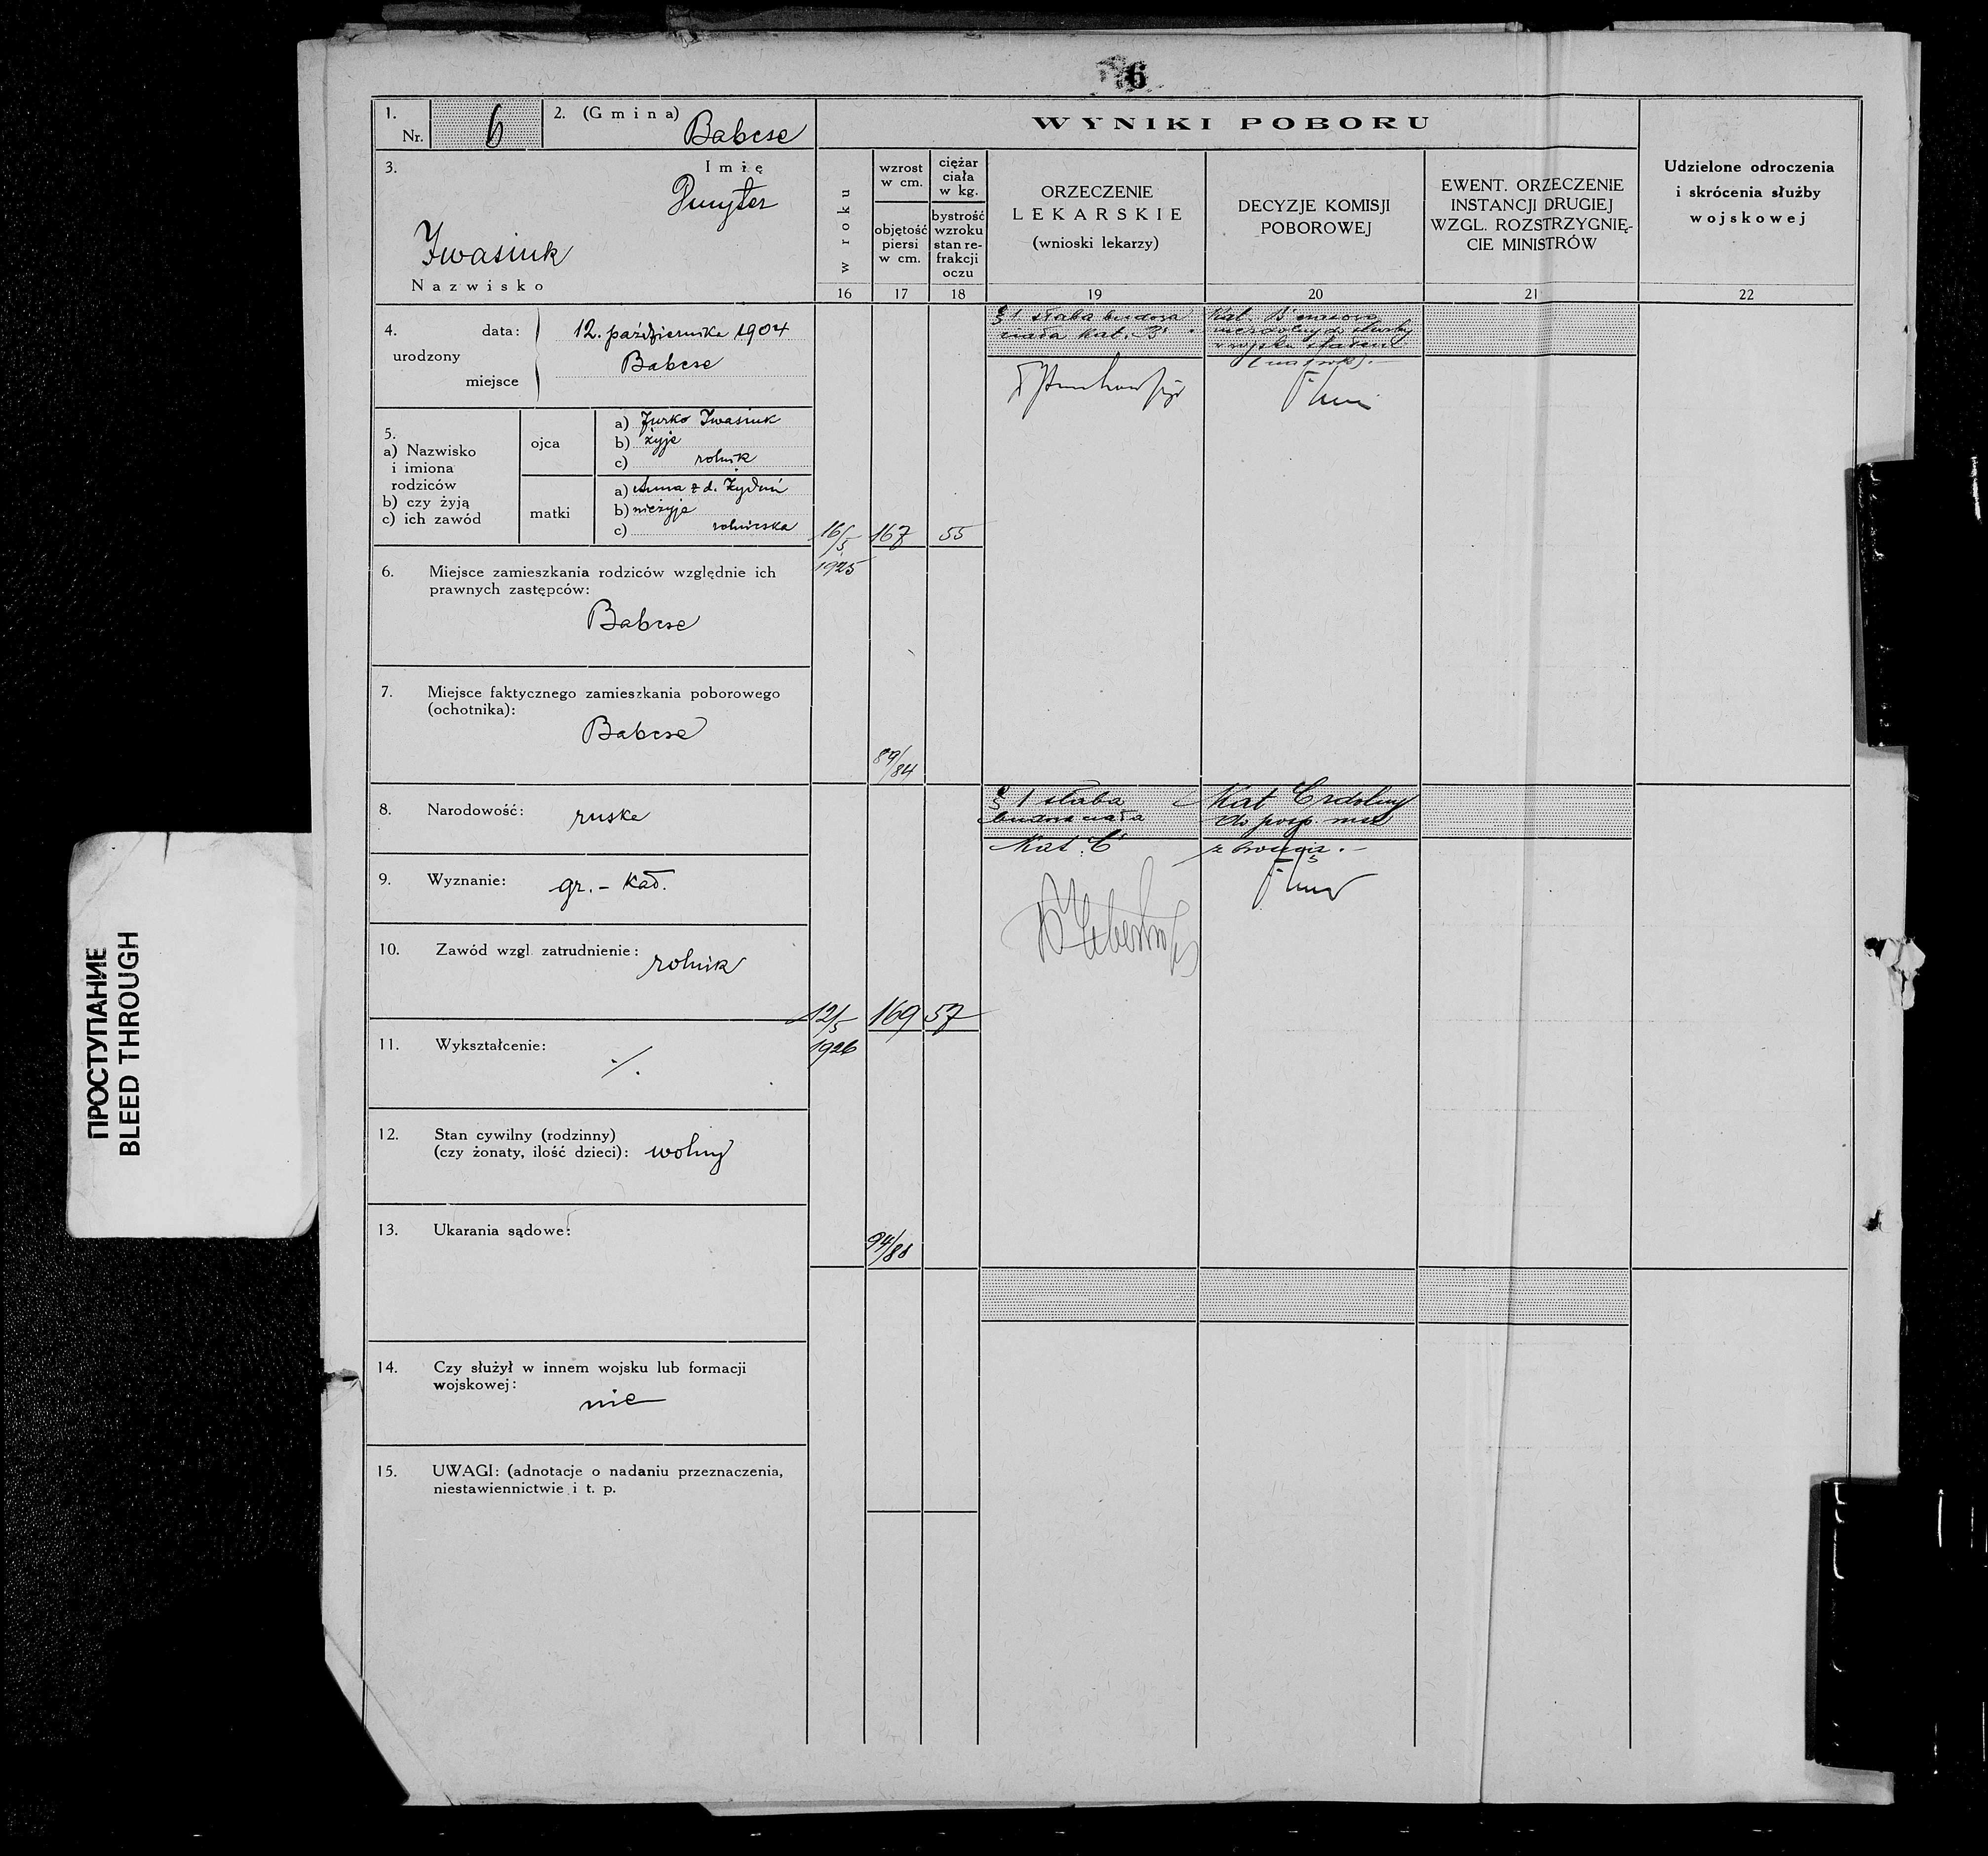 6
1.
Nr. 6
2. (Gmina) Babcse
3. Imię
Dmyter
Iwasiuk
Nazwisko
4. urodzony
data: 12. października 1904
miejsce Babcse
5.
a) Nazwisko
i imiona
rodziców
b) czy żyją
c) ich zawód
ojca
a) Jurko Iwasiuk
b) żyje
c) rolnik
matki
a) Anna z d.
b) nieżyje
c) rolniczka
6. Miejsce zamieszkania rodziców względnie ich
prawnych zastępców:
Babcse
7. Miejsce faktycznego zamieszkania poborowego
(ochotnika):
Babcse
8. Narodowość: ruska
9. Wyznanie: gr.-kat.
10. Zawód wzgl. zatrudnienie: rolnik
11. Wykształcenie:
./.
12. Stan cywilny (rodzinny)
(czy żonaty, ilość dzieci): wolny
13. Ukarania sądowe:
14. Czy służył w innem wojsku lub formacji
wojskowej:
nie
15. UWAGI: (adnotacje o nadaniu przeznaczenia,
niestawiennictwie i t. p.
WYNIKI POBORU
w roku
16
wzrost
w cm.
objętość
piersi
w cm.
17
ciężar
ciała
w kg.
bystrość
wzroku
stan re-
frakcji
oczu
18
ORZECZENIE
LEKARSKIE
(wnioski lekarzy)
19
DECYZJE KOMISJI
POBOROWEJ
20
EWENT. ORZECZENIE
INSTANCJI DRUGIEJ
WZGL. ROZSTRZYGNIĘ-
CIE MINISTRÓW
21
Udzielone odroczenia
i skrócenia służby
wojskowej
22
16/5
1925
167
55
84
§ 1 słaba budowa
ciała kat. B
Kat. B
12/5
1926
169
57
94/88
§ 1 słaba
budowa ciała
Kat. C
Kat C zdolny
do posp. rusz
z bronią.
ПРОСТУПАНИЕ
BLEED THROUGH